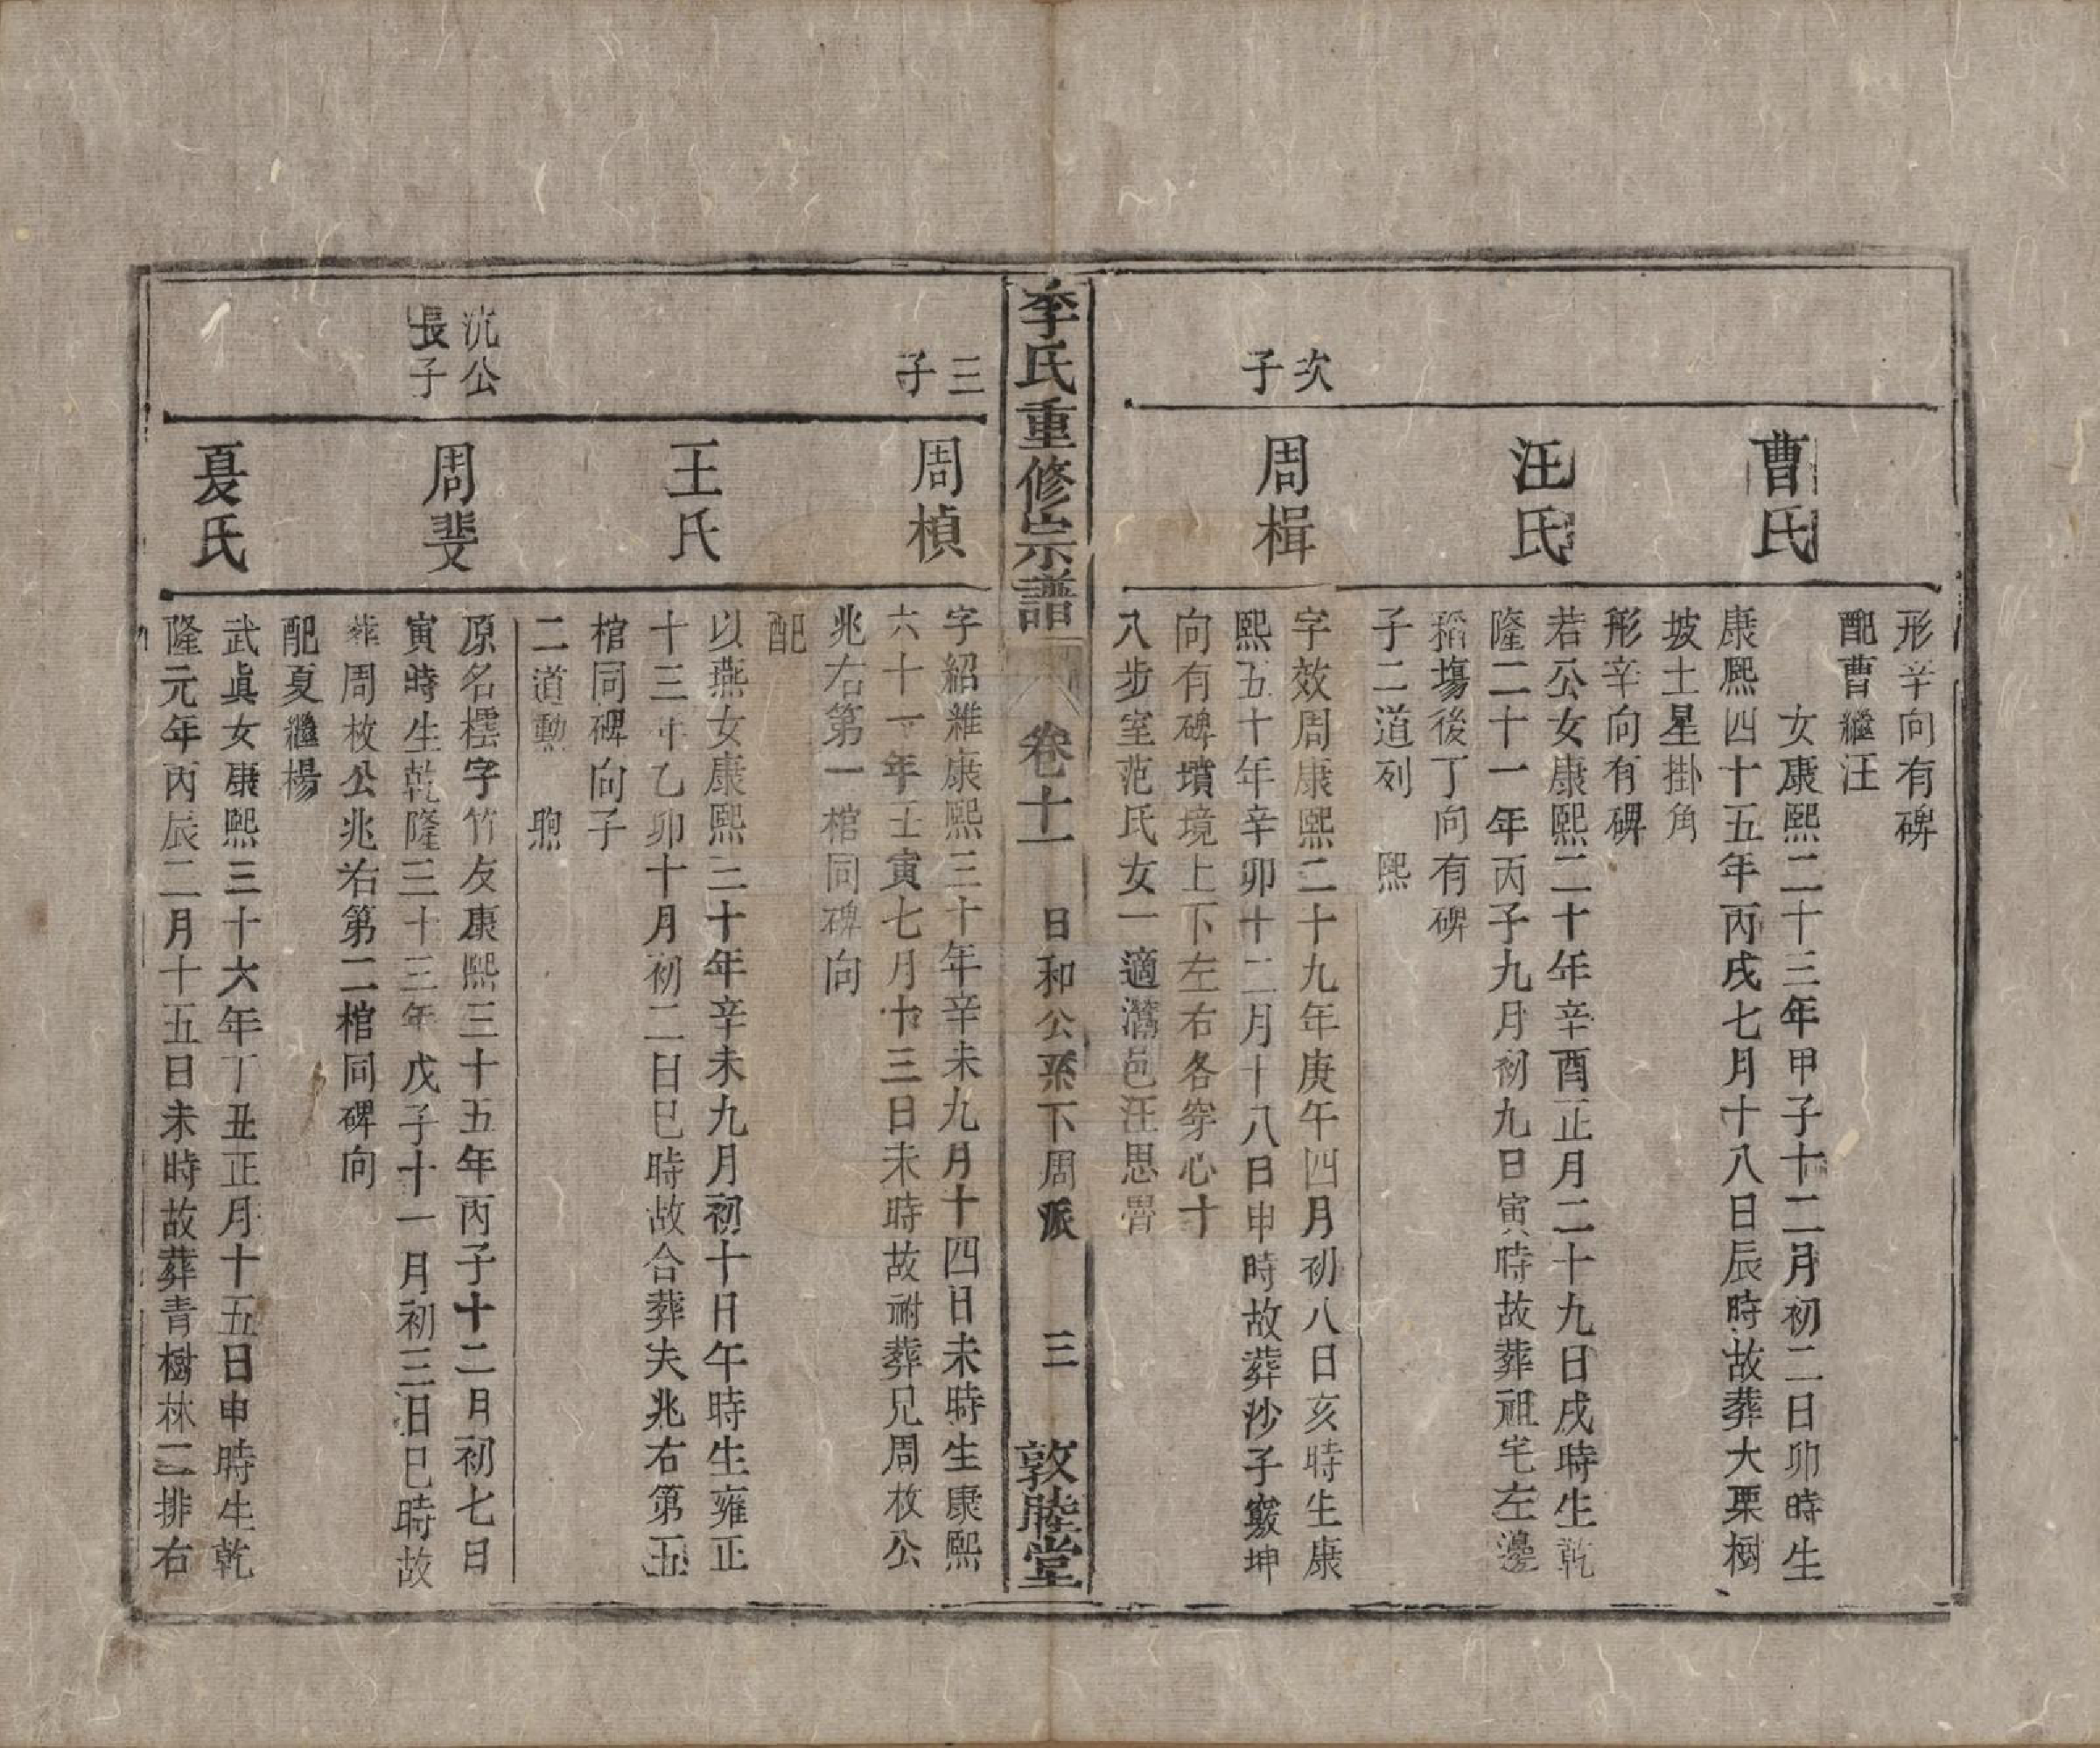 形辛向有碑
配曹繼汪
曹氏
女康熙二十三年甲子十二月初二日卯時生
康熙四十五年丙戌七月十八日辰時故葬大栗樹
坡土星掛角
形辛向有碑
汪氏
若公女康熙二十年辛酉正月二十九日戌時生乾
隆二十一年丙子九月初九日寅時故葬祖宅左邊
稻塲後丁向有碑
子二道列 熙
次子
周楫
字效周康熙二十九年庚午四月初八日亥時生康
熙五十年辛卯十二月十八日申時故葬沙子竅坤
向有碑墳境上下左右各穿心十
八步室范氏女一適灊邑汪思
李氏重修宗譜 卷十一 日和公系下周派 三 敦睦堂
三子
周楨
字紹雜康熙三十年辛未九月十四日未時生康熙
六十一年壬寅七月十三日未時故祔葬兄周枚公
兆右第一棺同碑向
配
王氏
以燕女康熙三十年辛未九月初十日午時生雍正
十三年乙卯十月初二日巳時故合葬夫兆右第五
棺同碑向子
二道勳 煦
沆公長子
周斐
原名橒字竹友康熙三十五年丙子十二月初七日
寅時生乾隆三十三年戊子十一月初三日巳時故
葬周枚公兆右第二棺同碑向
配夏繼楊
夏氏
武眞女康熙三十六年丁丑正月十五日申時生乾
隆元年丙辰二月十五日未時故葬青樹林二排右